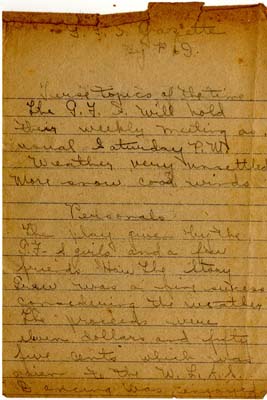 Gazette
News topics of the time
The P. F. S. will hold
their weekly meeting as
usual Saturday P.M.
Weather very unsettled
More snow, cool winds
Personals
The play given by the
P.F.S girls and a few
friends How the Story
Grew was a success
considering the weather
The proceeds were
eleven dollars and fifty
five cents which was
given to the W. L. A. S.
Dancing was enjoyed